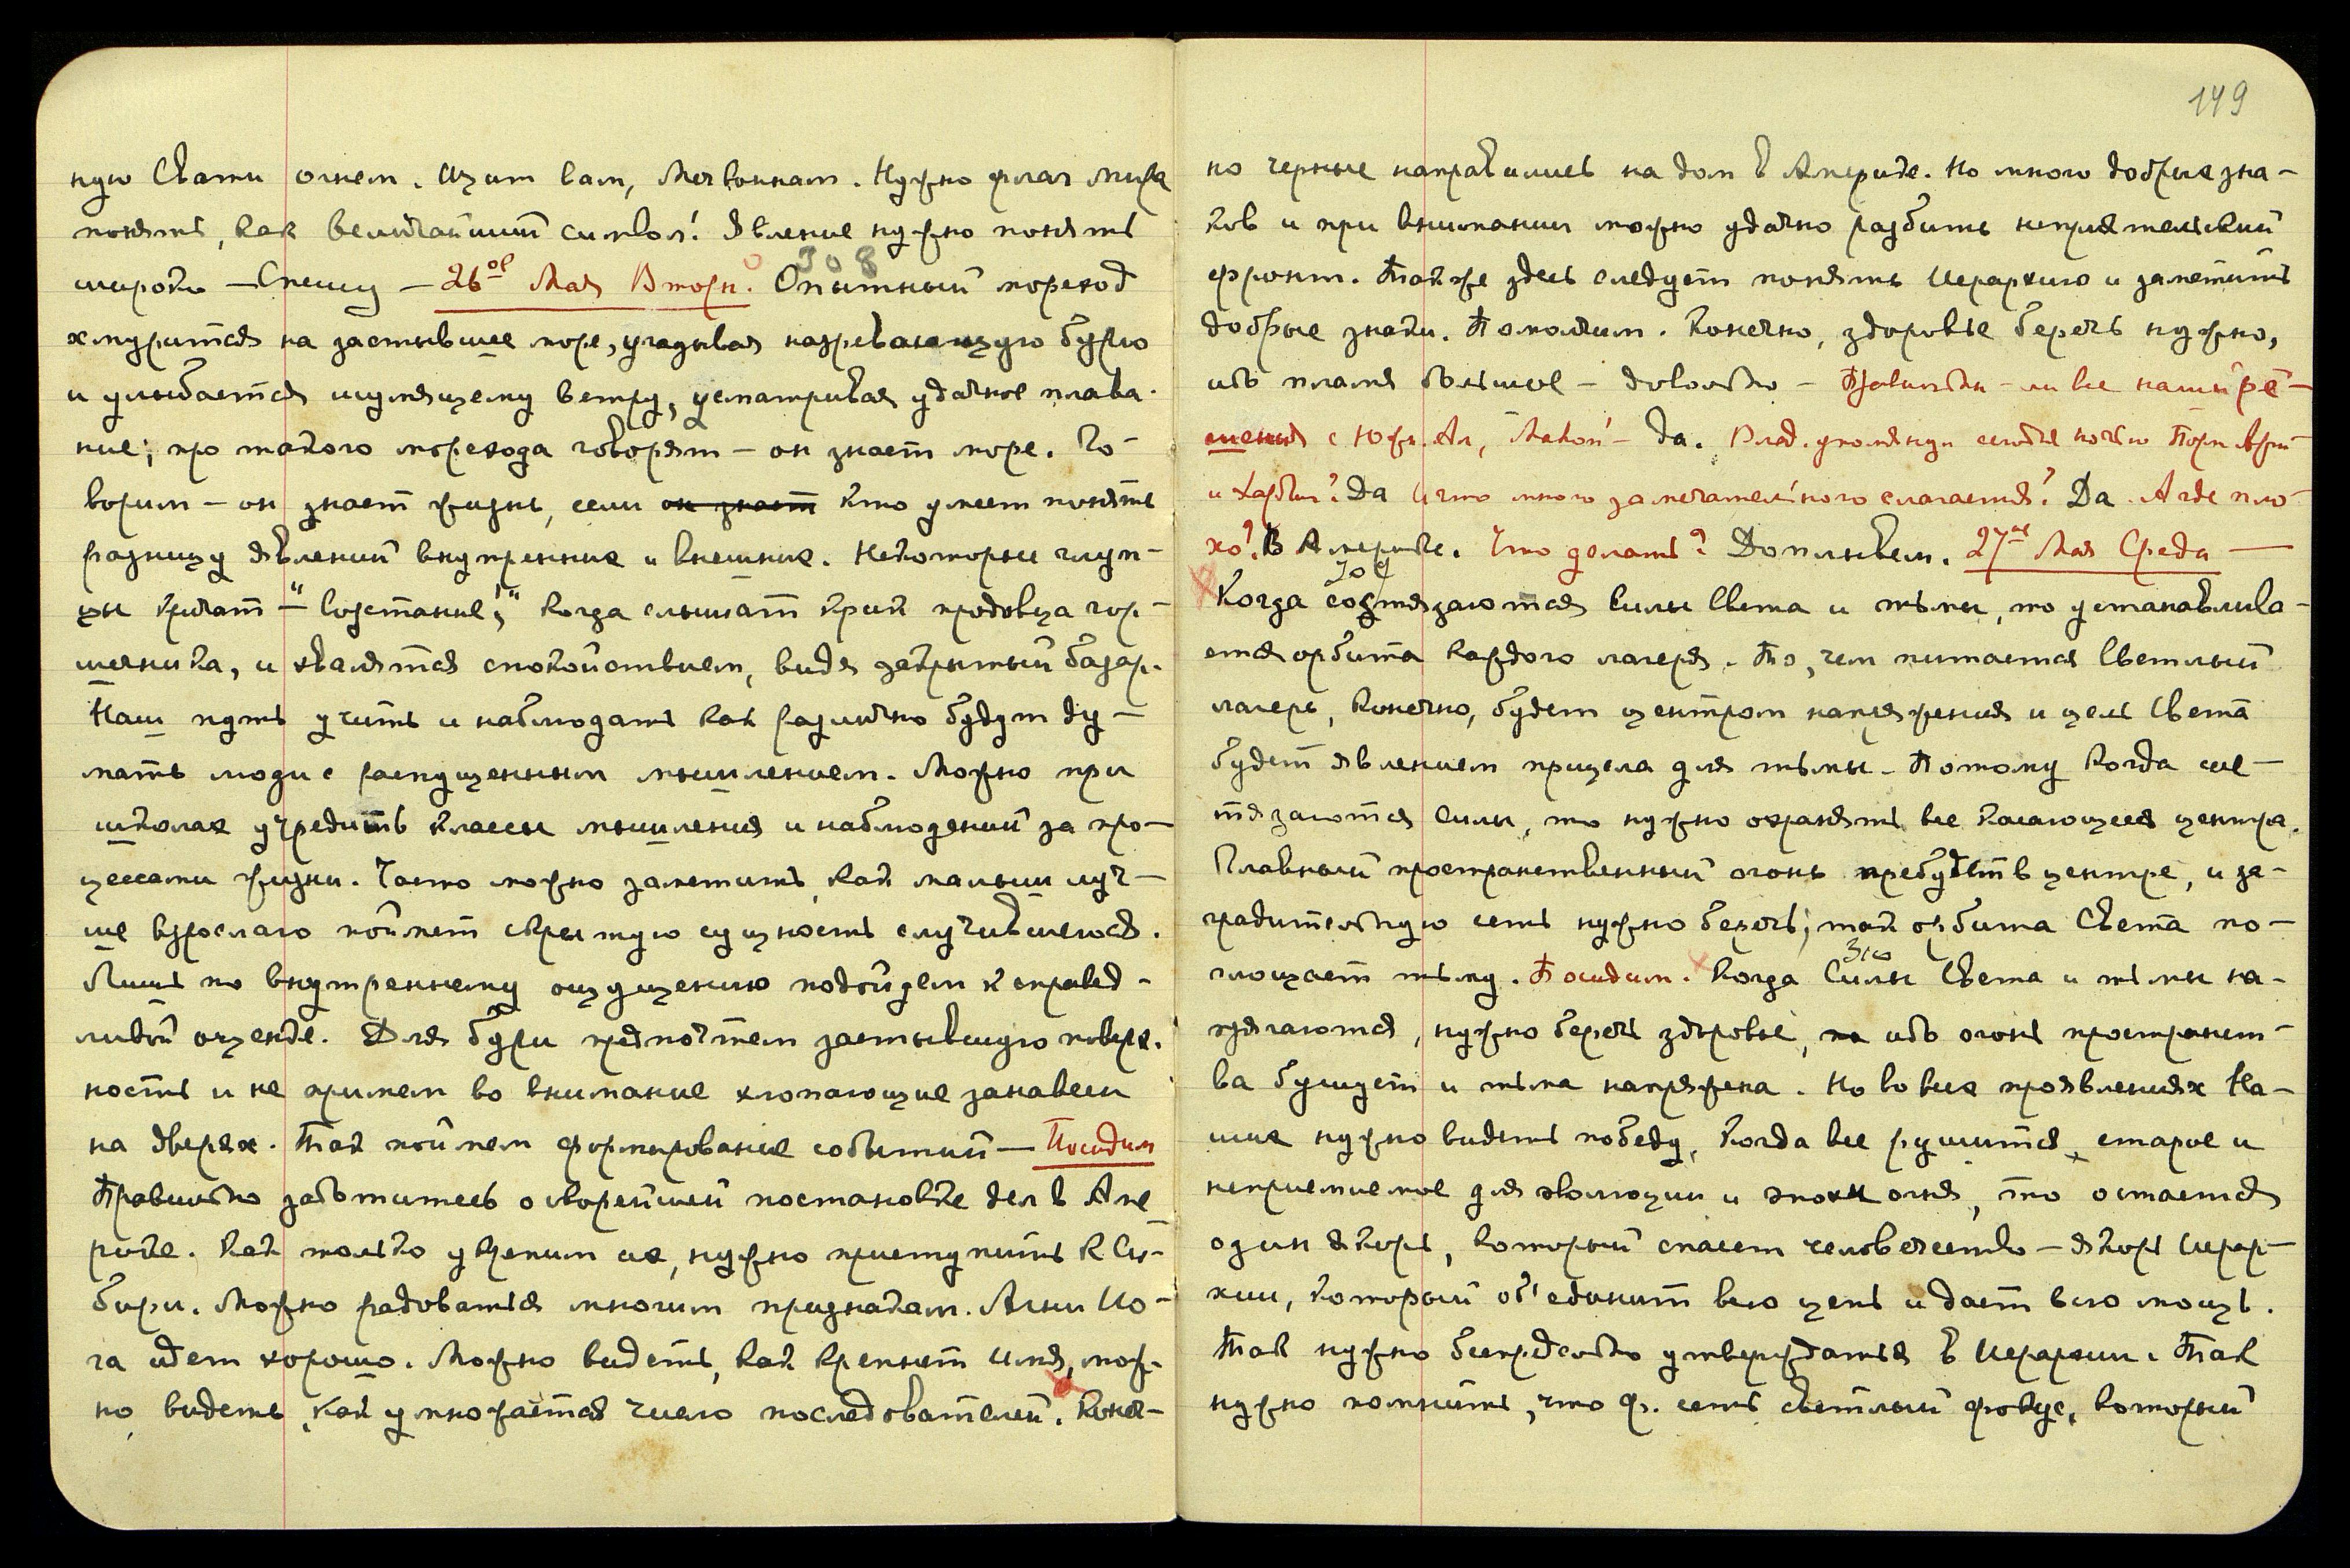 ную Свати огнем. Щит вам, Мечвоинам. Нужно флаг мира
понять, как величайший символ! Явление нужно понять
широко — Спешу — 26ое Мая Вторн. 308 Опытный мореход
хмурится на застывшее море, угадывая назревающую бурю
и улыбается шумящему ветру, усматривая удачное плава-
ние; про такого морехода говорят — он знает море. Го-
ворим — он знает жизнь, если он знает кто умеет понять
разницу явлений внутренних и внешних. Некоторые глуп-
цы кричат — "восстание!", когда слышат крик продавца гор-
шечника, и хвалятся спокойствием, видя закрытый базар.
Наш путь учить и наблюдать как различно будут ду-
мать люди с распущенным мышлением. Можно при
школах учредить классы мышления и наблюдений за про-
цессами жизни. Часто можно заметить, как малыш луч-
ше взрослаго поймет скрытую сущность случившегося.
Лишь по внутреннему ощущению подойдем к справед-
ливой оценке. Для бури предпочтем застывшую поверх-
ность и не примем во внимание хлопающие занавеси
на дверях. Так поймем формирование событий — Посидим
Правильно заботитесь о скорейшей постановке дел в Аме
рике. Как только укрепим их, нужно приступить к Си-
бири. Можно радоваться многим признакам. Агни Ио-
га идет хорошо. Можно видеть, как крепнет Имя, мож-
но видеть, как умножается число последователей. Конеч-
149
но черные направились на дом в Америке. Но много добрых зна-
ков и при внимании можно удачно разбить неприятельский
фронт. Также здесь следует понять Иерархию и заметить
добрые знаки. Помолчим. Конечно, здоровье беречь нужно,
ибо пламя большое — довольно — Правильны-ли все наши ре-
шения с Юр. Ал, Мahon — Да. Влад. упомянул сегодня ночью Порт Арт
и Харбин? Да И что много замечательного слагается? Да. А где пло-
хо? В Америке. Что делать? Доплывем. 27ое Мая Среда —
309 Когда состязаются Силы Света и тьмы, то устанавлива-
ется орбита каждого лагеря. То, чем питается Светлый
лагерь, конечно, будет центром напряжения и цель Света
будет явлением прицела для тьмы. Потому когда сос-
тязаются Силы, то нужно охранять все касающееся центра.
Главный пространственный огонь пребудет в центре, и за-
градительную сеть нужно беречь; так орбита Света по-
глощает тьму. Посидим. 310 Когда Силы Света и тьмы на-
прягаются, нужно беречь здоровье, на ибо огонь пространст-
ва бушует и тьма напряжена. Но во всех проявлениях На-
ших нужно видеть победу, когда все рушится, старое и
неприемлемое для эволюции и эпохи огня, то остается
один якорь, который спасет человечество — якорь Иерар-
хии, который об'единит всю цепь и даст всю мощь.
Так нужно беспредельно утверждаться в Иерархии. Так
нужно помнить, что Ф. есть светлый фокус, который